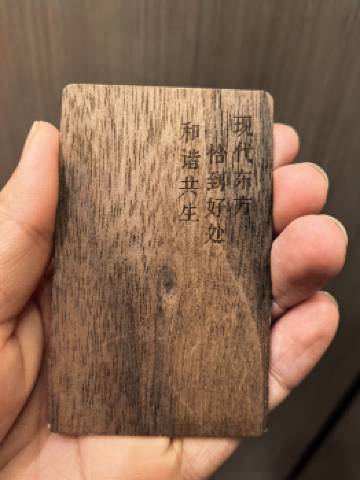 现代东方
恰到好处
和谐共生